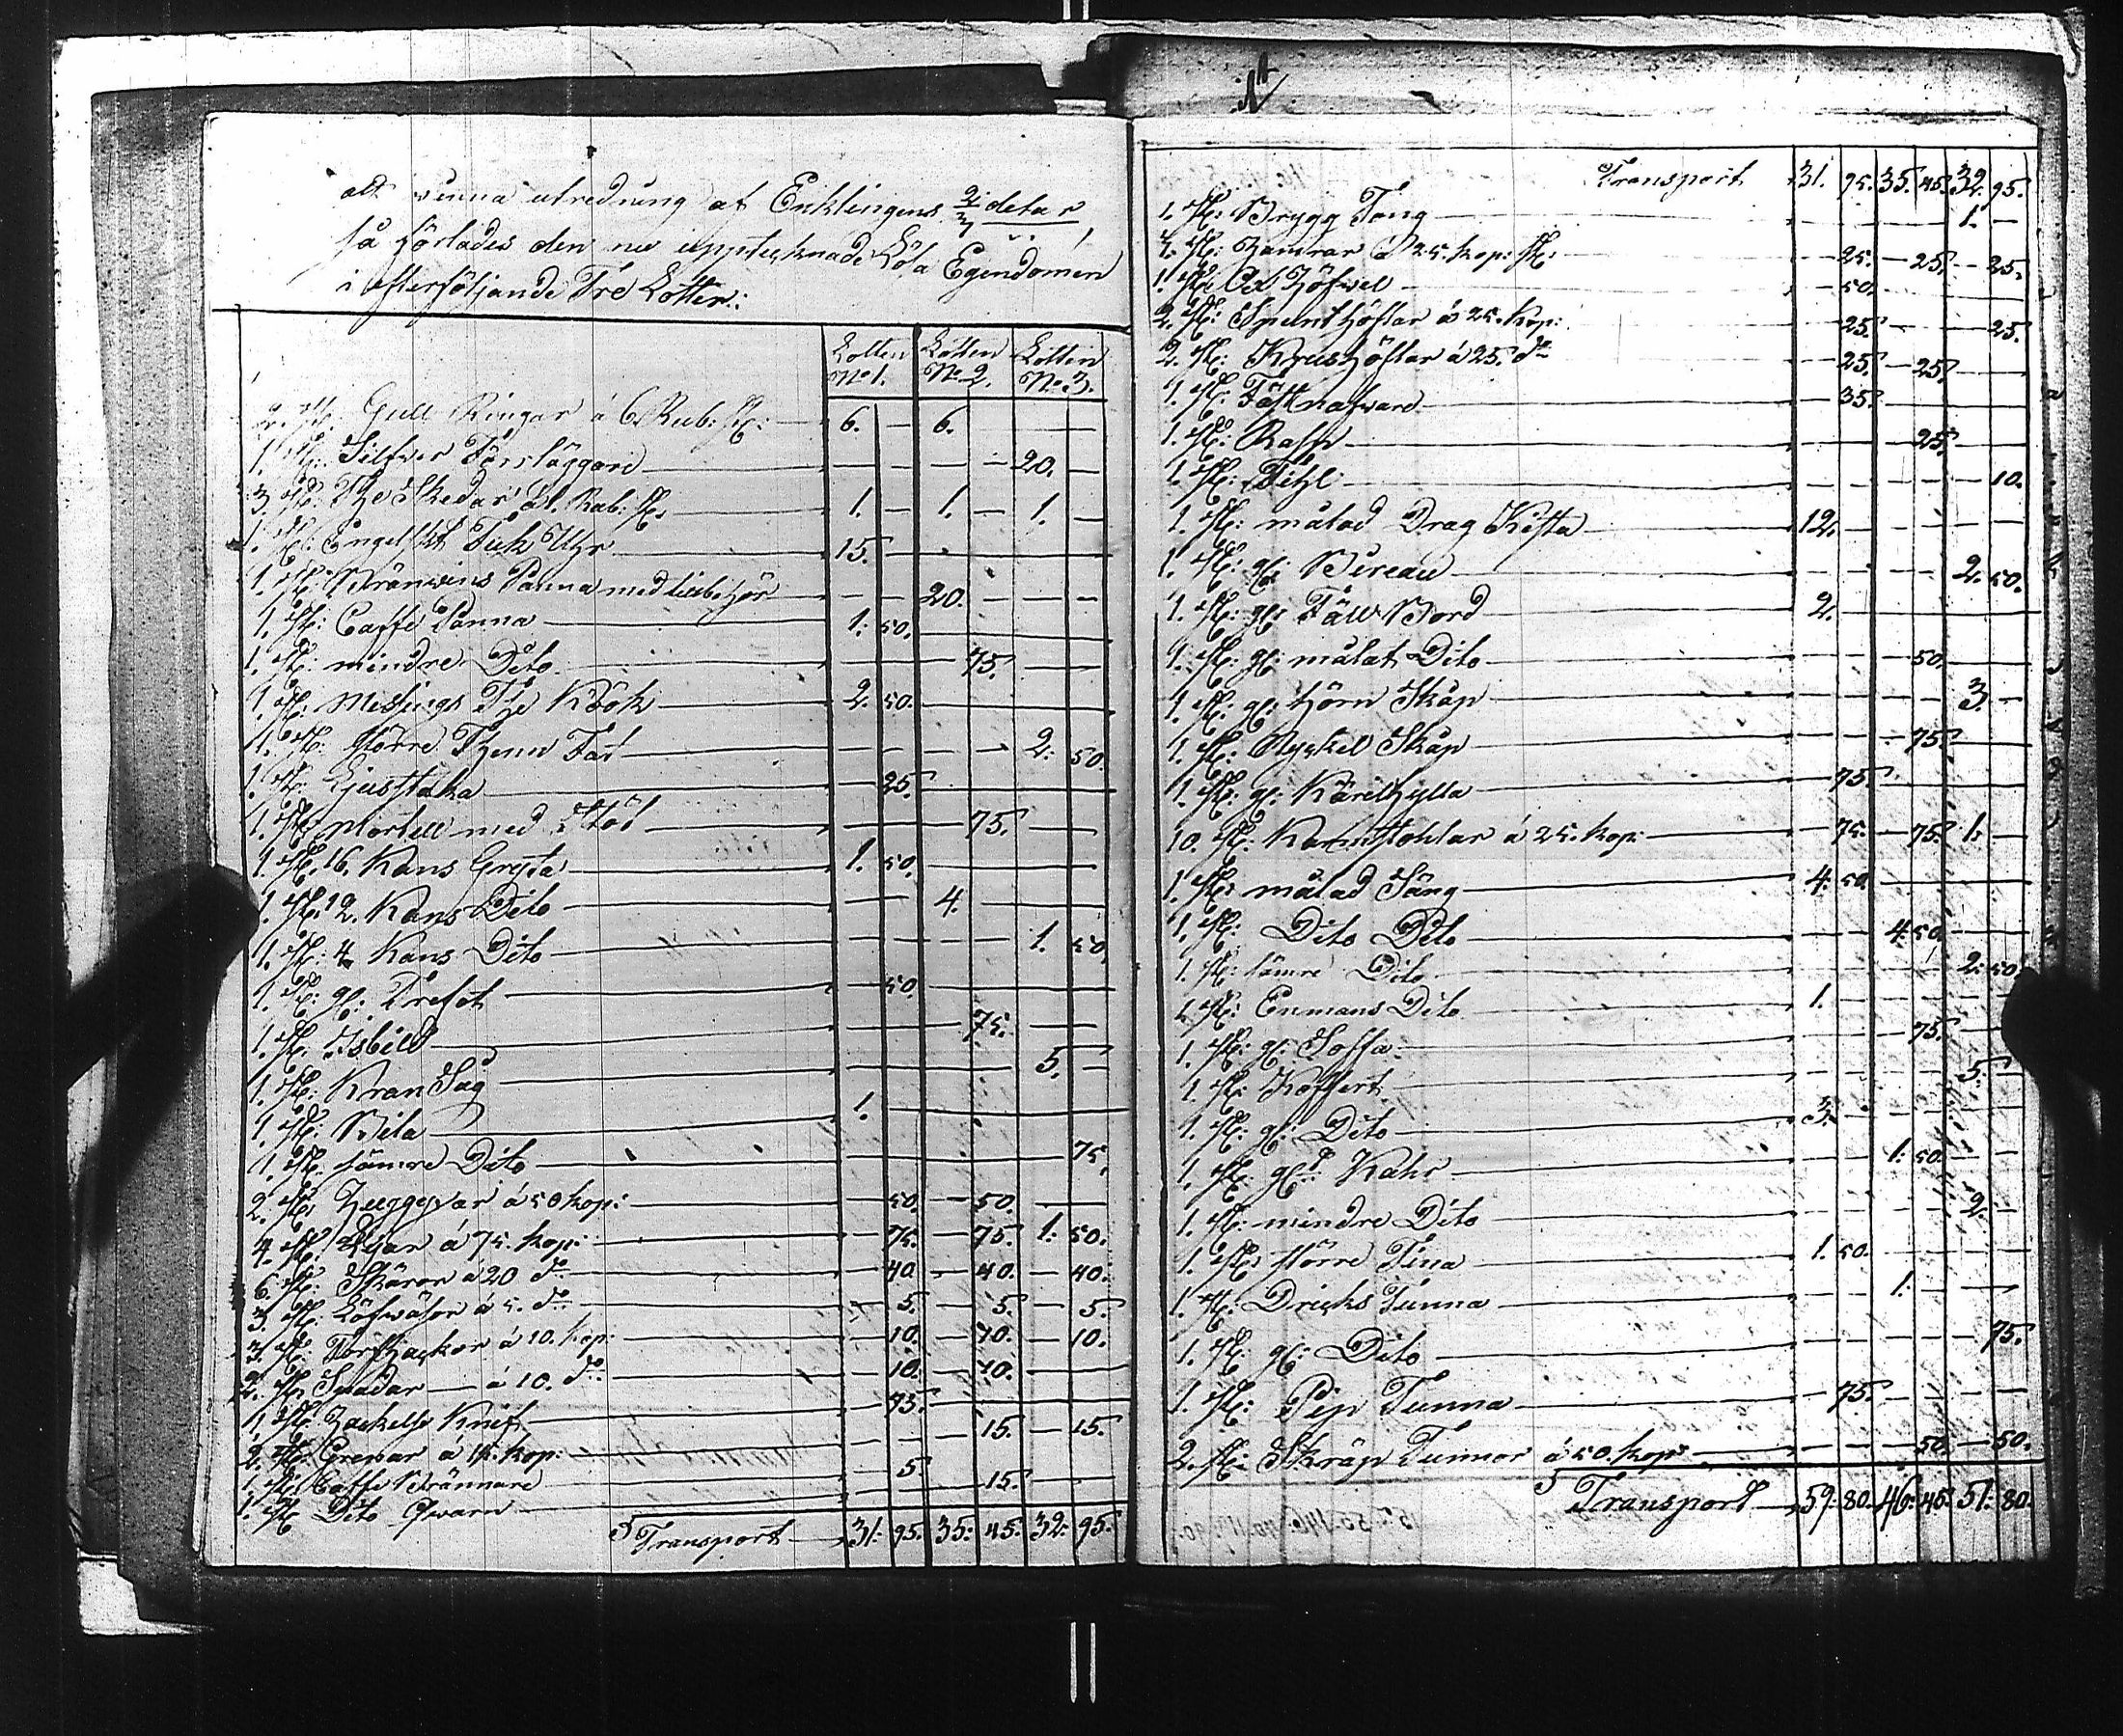 att vinna utredning af Enklingens 2/3 delar,
så förlades den nu upptecknade Lösa Egendomen
i efterföljande Tre Lotter:
Lotten Lotten Lotten
No 1. No 2. No 3.
2. St: Gull Ringar á 6. Rub: St: 6. — 6. — —
1. St: Silfver Förläggare — — — — 20. —
3. St: The Skedar á 1. Rub: St: 1. — 1. — 1. —
1. St: Engelskt Fick Uhr 15. — — — — —
1. St: Bränwins Panna med tillbehör — — 20. — — —
1. St: Caffe Panna 1. 50. — — — —
1. St: mindre Dito — — — 75. — —
1. St: Messings The Kök 2. 50. — — — —
1. St: större Thenn Fat — — — — 2. 50.
1. St: Ljusstaka — 25. — — — —
1. St: Mortell med Stöt — — — 75. — —
1. St: 16. Kans Gryta 1. 50. — — — —
1. St: 12. Kans Dito — — 4. — — —
1. St: 4 Kans Dito — — — — 1. 50
1. St: gl: Trefot — 50. — — — —
1. St: Isbill — — — 75. — —
1. St: Kran Såg — — — — 5. —
1. St: Bila 1. — — — — —
1. St: sämre Dito — — — — — 75.
2. St: Huggyxar á 50 kop: — 50. — 50. — —
4. St: Liar á 75. kop: — 75. — 75. 1. 50.
6. St: Skäror á 20 do — 40 — 40. — 40.
3. St: Löfwäsor á 5. do — 5. — 5. — 5.
3. St: Torfhackor á 10. kop: — 10. — 10. — 10.
2. St: Spadar — á 10. do — 10. — 10. — —
1. St: Hackelse Knif — 75. — — — —
2. St: Grenar á 15. kop: — — — 15. — 15.
1. St: Caffe Brännare — 5 — — — —
1. St: Dito Qwarn — — — 15. — —
Transport 31. 95. 35. 45. 32. 95.
Transport 31. 95. 35. 45. 32. 95.
1. St: Brygg Tång — — — — 1. —
3. St: Hamrar á 25. kop: St: — 25. — 25. — 25.
1. St: Höfvel — 50. — — — —
2. St: Spunt Höflar á 25. kop: — 25. — — — 25.
2. St: Krus Höflar á 25. do — 25. — 25. — —
1. St: nafvare — 35. — — — —
1. St: Rasp — — — 25. — —
1. St: Fihl — — — — — 10.
1. St: målad Drag Kista 12. — — — — —
1. St: gl: Bureau — — — — 2. 50.
1. St: gl: Fäll Bord 2. — — — — —
1. St: gl: målat Dito — — — 50. — —
1. St: gl: Hörn Skåp — — — — 3. —
1. St: Nyckel Skåp — — — 75. — —
1. St: gl: Kärilhylla — 75. — — — —
10. St: Karmstohlar á 25. kop: — 75. — 75. 1. —
1. St: målad Säng 4. 50 — — — —
1. St: Dito Dito — — 4. 50. — —
1. St: sämre Dito — — — — 2. 50.
1. St: Enmans Dito 1. — — — — —
1. St: gl: Soffa — — — 75. — —
1. St: Koffert — — — — 5. —
1. St: gl: Dito 3. — — — — —
1. St: gl: Kahr — — 1. 50. — —
1. St: mindre Dito — — — — 2. —
1. St: större Tina 1. 50. — — — —
1. St: Dricks Tunna — — 1. — — —
1. St: gl: Dito — — — — — 75.
1. St: Pip Tunna — 75. — — — —
2. St: Skräp Tunnor á 50. kop: — — — 50. — 50.
Transport 59. 80. 46. 45. 51. 80.